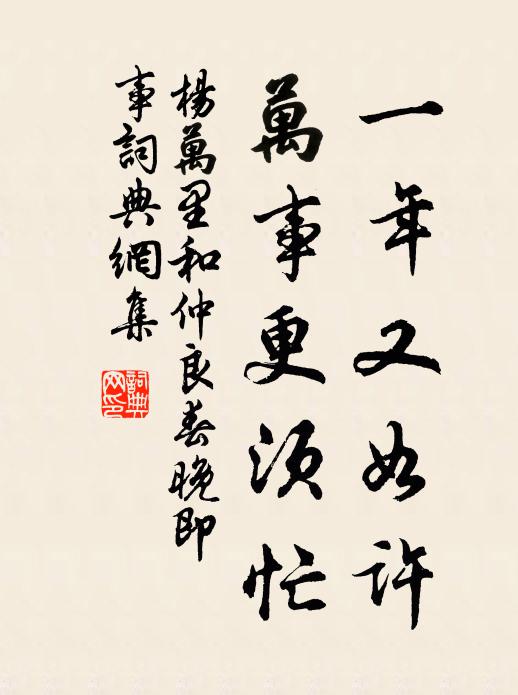 一年又如許
萬事更須忙
楊萬里和仲良春晚即
事詞典網集
詞典
网印